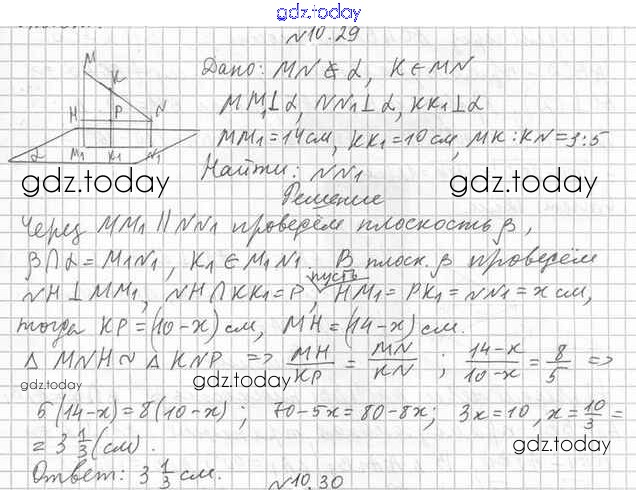 gdz.today
№10.29
Дано: MN ⊄ α, K ∈ MN
MM₁⊥α, NN₁⊥α, KK₁⊥α
MM₁ = 14 см, KK₁ = 10 см, MK : KN = 3 : 5
Найти: NN₁
M
K
H P N
α M₁ K₁ N₁
gdz.today gdz.today
Решение
Через MM₁ || NN₁ проведём плоскость β,
β ∩ α = M₁N₁, K₁ ∈ M₁N₁. В плоск. β проведём
NH ⊥ MM₁, NH ∩ KK₁ = P, пусть HM₁ = PK₁ = NN₁ = x см,
тогда KP = (10 - x) см, MH = (14 - x) см.
△ MNH ~ △ KNP => MH/KP = MN/KN ; 14-x/10-x = 8/5 =>
gdz.today gdz.today
5(14-x) = 8(10-x) ; 70-5x = 80-8x; 3x = 10, x = 10/3 =
= 3 1/3 (см).
gdz.today
Ответ: 3 1/3 см.
№10.30